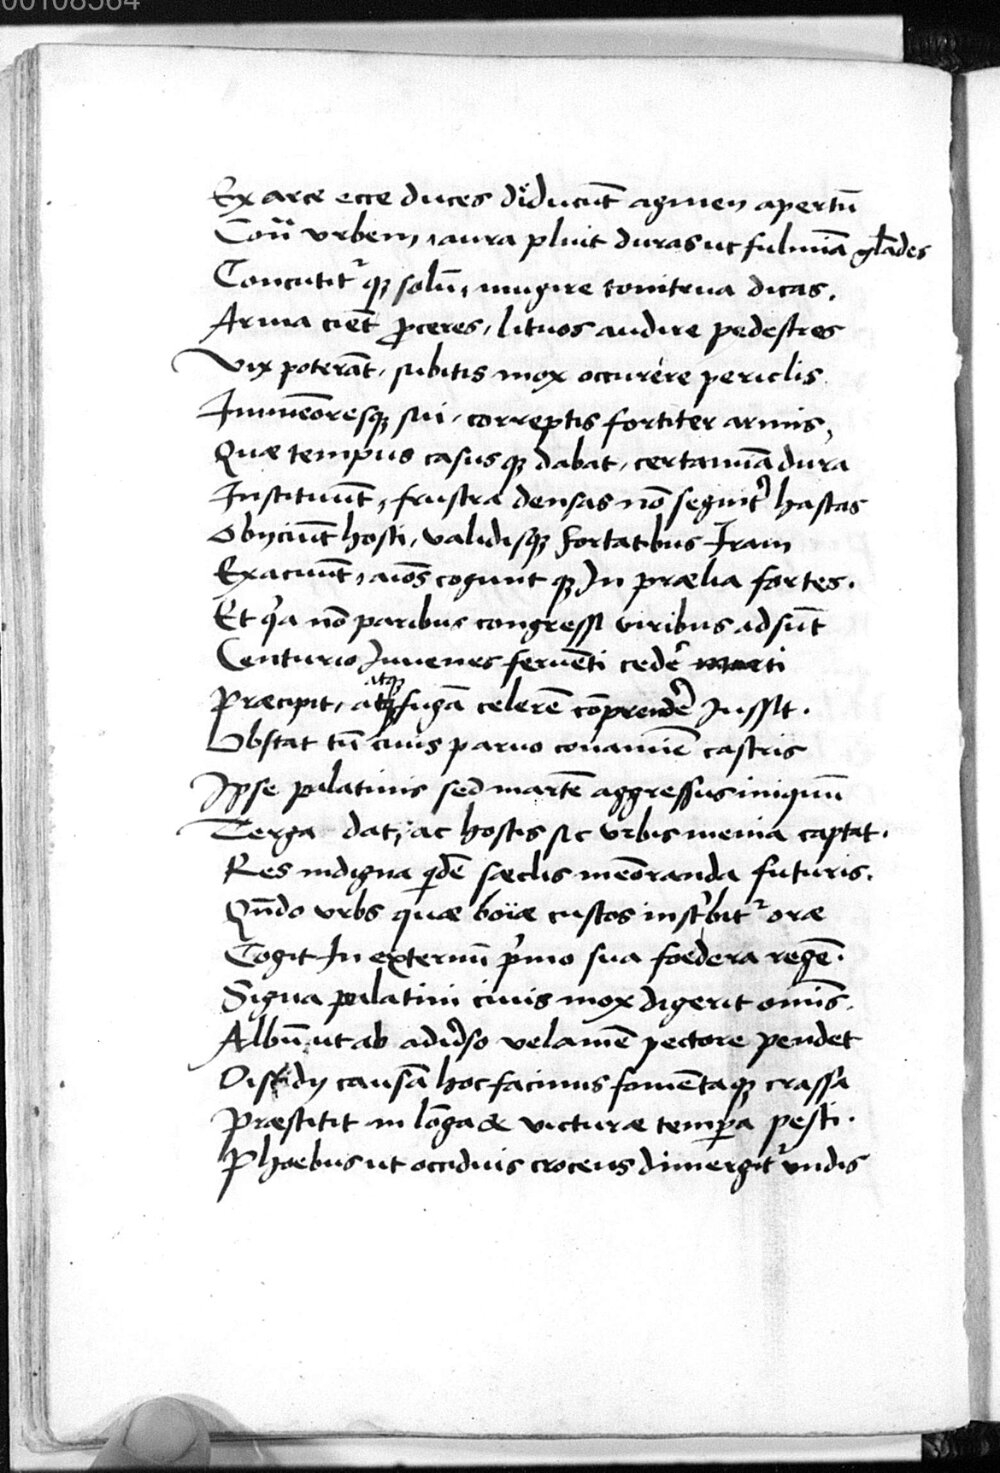 00108564
Ex arce ecce duces diducũt agmen apertũ
Coñ vrbem, aura pluit duras ut fulmiã glãdes
Concutit᷑ qꝫ solũ, mugire tonitrua dicas.
Arma ciẽt ꝓceres, lituos audire pedestres
Vix poterãt, subitis mox occurere periclis
Immẽoresqꝫ sui, correptis fortiter armis,
Quæ tempus casusqꝫ dabat, certamiã dura
Instituũt, frustra densas nõ segnit᷑ hastas
Obijciũt hosti, validisqꝫ hortatibus Iram
Exacuũt, aĩos cogunt qꝫ In prælia fortes.
Et q̃a nõ paribus congressi viribus adsũt
Centurio Iuuenes feruẽti cedẽ marti
Præcipit, atqꝫ fugã celerẽ cõprendẽ Iussit.
atqꝫ
Obstat tũ ciuis paruo conamiẽ castris
Ipse palatinis sed martẽ aggressus iniquũ
Terga dat, ac hostis sic vrbis menia captat.
Res indigna q̃dẽ sæclis mẽoranda futuris.
Qñdo vrbs quæ boiæ custos inscͥbit᷑ oræ
Cogit In externũ pͥmo sua foedera regẽ.
Signa palatini ciuis mox digerit omĩs.
Albũ ut ab aduͥso velamẽ pectore pendet
Disidij causã hoc facinus fomẽtaqꝫ crassa
Præstitit in lõga & victuræ temꝑa pesti.
Phoebus ut occiduis croceus dimergit᷑ vndis